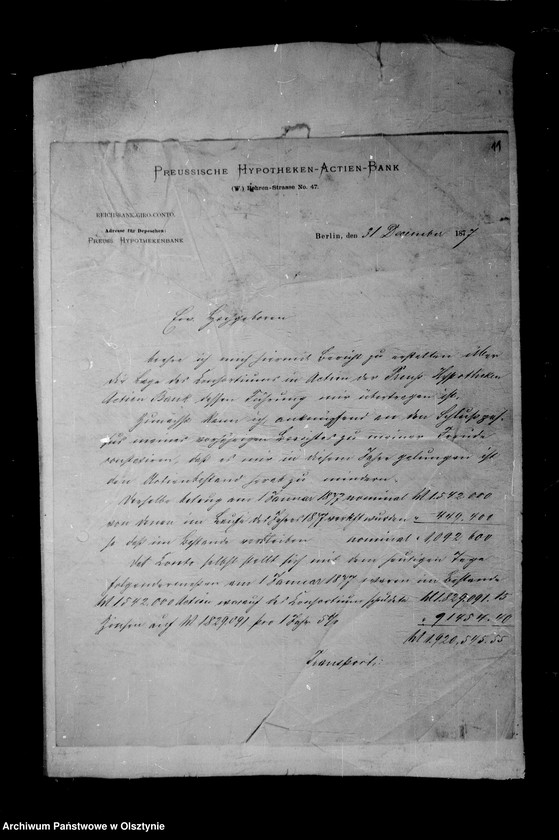 11
PREUSSISCHE HYPOTHEKEN-ACTIEN-BANK
(W.) Behren-Strasse No. 47.
REICHSBANK-GIRO-CONTO.
Adresse für Depeschen:
PREUSS HYPOTHEKENBANK
Berlin, den 31 Dezember 1877
Ew. Hochgeboren
beehre ich mich hiermit Bericht zu erstatten über
die Lage des Consortiums in Actien der Preuß Hypotheken
Actien Bank dessen Führung mir übertragen ist.
Zunächst kann ich anknüpfend an den Schlußpas-
sus meines vorjährigen Berichtes zu meiner Freude
constatiren, daß es mir in diesem Jahre gelungen ist
den Actienbestand etwas zu mindern.
Derselbe betrug am 1 Januar 1877 nominal M 1.542.000
von denen im Laufe des Jahres 1877 verkft wurden " 449.400
so daß im Bestande verbleiben nominal " 1.092.600
das Conto selbst stellt sich mit dem heutigen Tage
folgendermaßen am 1 Januar 1877 waren im Bestande
M 1.542.000 Actien worauf das Consortium schuldete M 1.829.091.15
Zinsen auf M 1.829.091 pro 1 Jahr 5% " 91454.40
M 1.920.545.55
Transport:
Archiwum Państwowe w Olsztynie